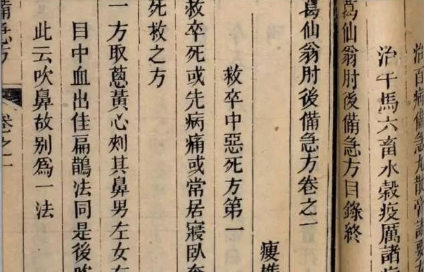 治百病備急丸散常
治牛馬六畜水穀疫厲諸
葛仙翁肘後備急方目錄終
葛仙翁肘後備急方卷之一
瘦樵
救卒中惡死方第一
救卒死或先病痛或常居寢臥奄
死救之方
一方取蔥黃心刾其鼻男左女右
目中血出佳扁鵲法同是後
此云吹鼻故别爲一法
備急方
卷之一